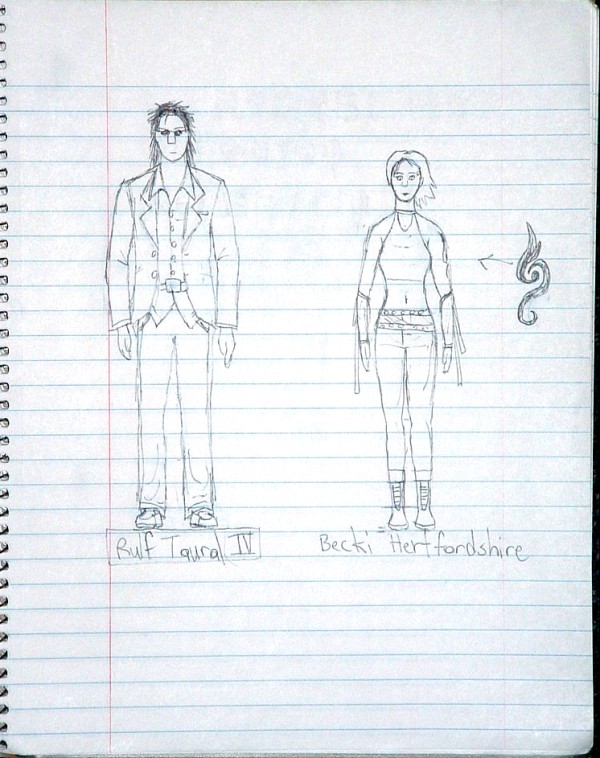 Rulf Taural IV
Becki Hertfordshire